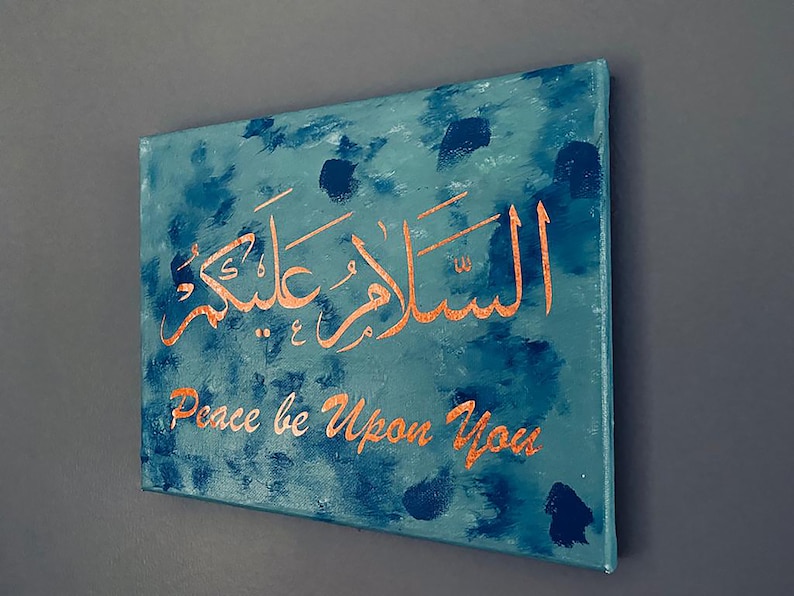 السَّلَامُ عَلَيْكُمُ
Peace be Upon You